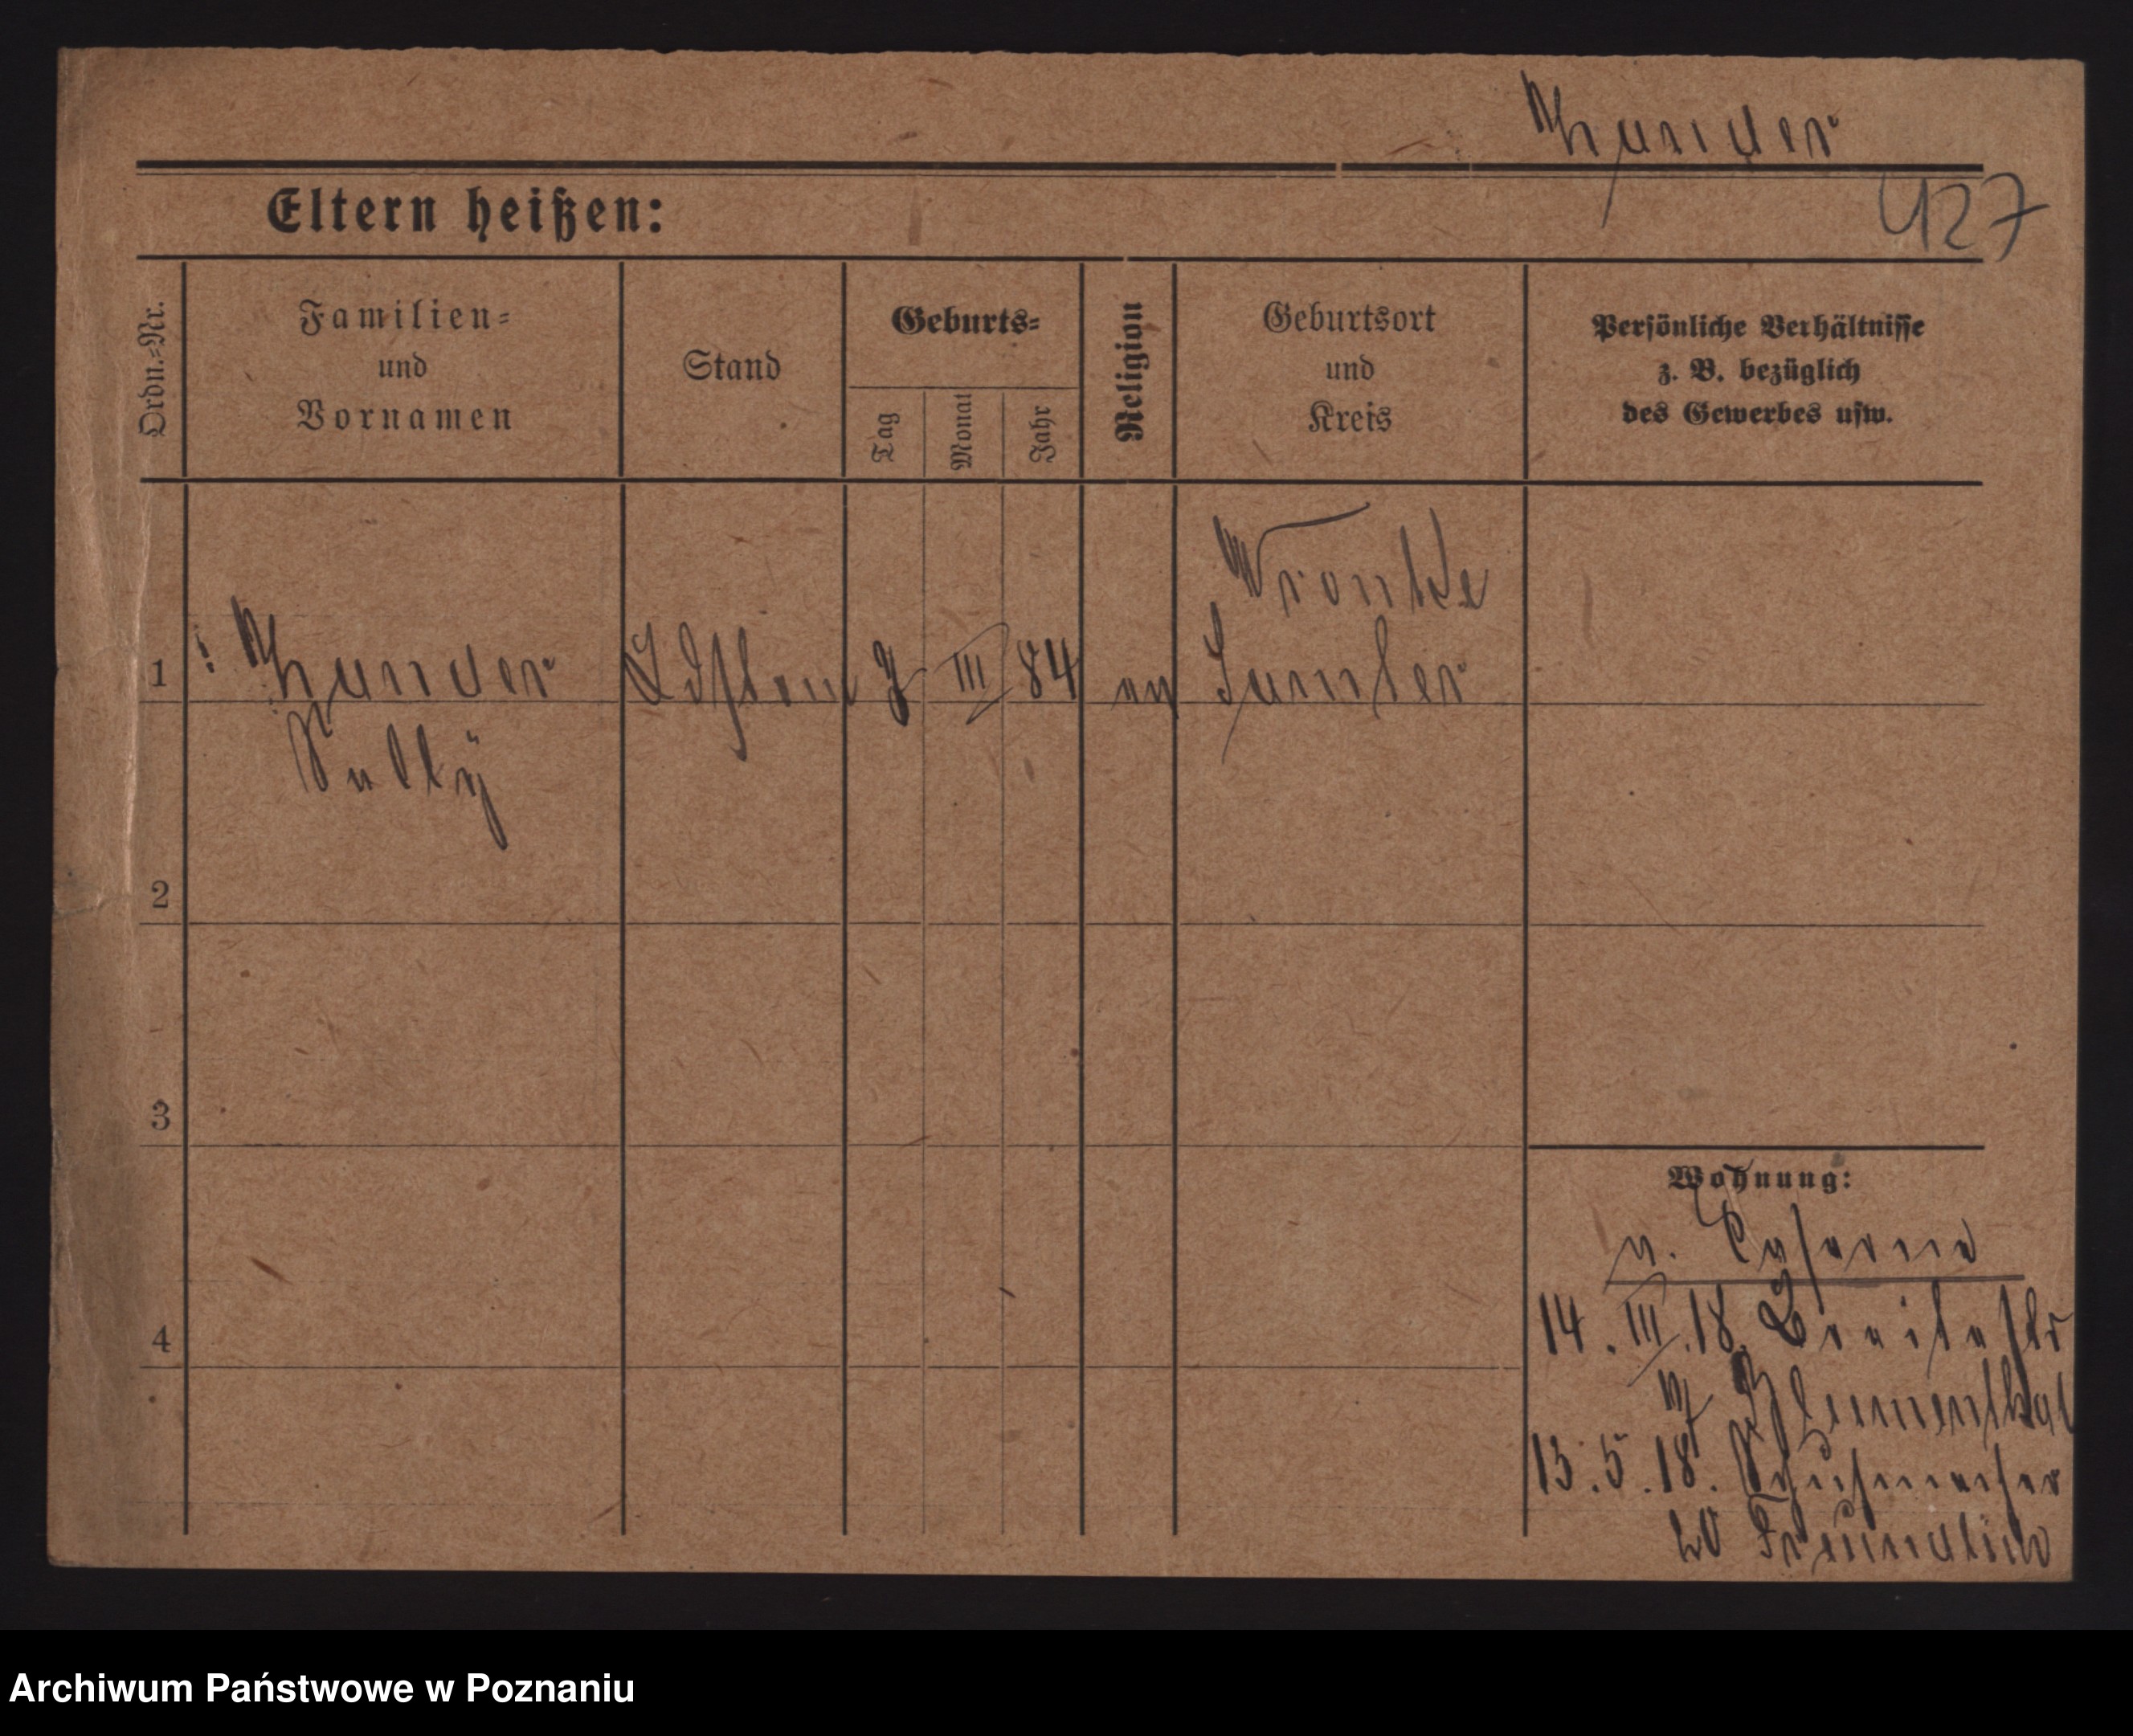 Zander
427
Eltern heißen:
Ordn.-Nr.
Familien-
und
Vornamen
Stand
Geburts-
Tag
Monat
Jahr
Religion
Geburtsort
und
Kreis
Persönliche Verhältnisse
z. B. bezüglich
des Gewerbes usw.
Wronke
1
III 84
Samter
Sally
2
3
4
Wohnung:
14. III. 18. Breitestr
Blumenthal
13. 5. 18. Schuhmacher
20
Archiwum Państwowe w Poznaniu